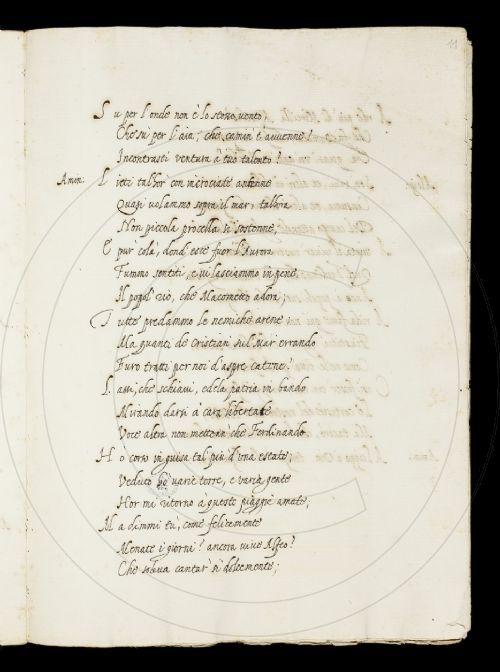 11
Su per l'onde non è lo stesso vento,
Che sù per l'aia; che camin t'auuenne?
Incontrasti ventura à tuo talento?
Amin: Lieti talhor con incrociate antenne
Quasi volammo sopra il mar, talhora
Non piccola procella si sostenne;
E pur colà, dond' esce fuor l'Aurora
Fummo sentiti, e ui lasciammo in pene
Il popol rio, che Macometto adora;
Tutte predammo le nemiche arene;
Ma quanti de Cristiani sul Mar errando
Furo tratti per noi d'aspre catene?
Lassi, che schiaui, e dela patria in bando
Mirando darsi à cara libertate
Voce altra non mettean che Ferdinando.
Ho corso in guisa tal più d'una estate;
Veduto hò varie terre, e varia gente
Hor mi ritorno à queste piagge amate;
Ma dimmi tu, come felicemente
Menate i giorni? ancora uiue Alfeo?
Che soleua cantar sì dolcemente;